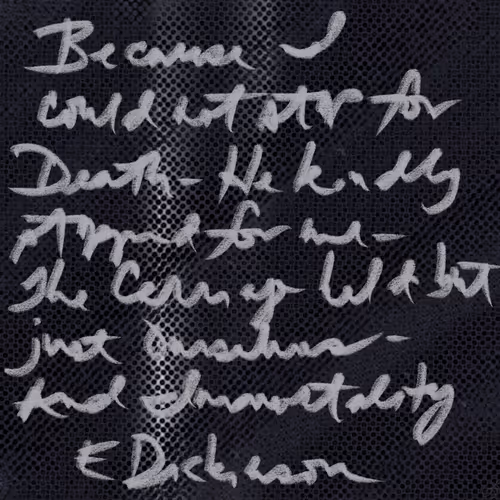 Because I
could not stop for
Death - He kindly
stopped for me -
The Carriage held but
just Ourselves -
And Immortality
E Dickinson